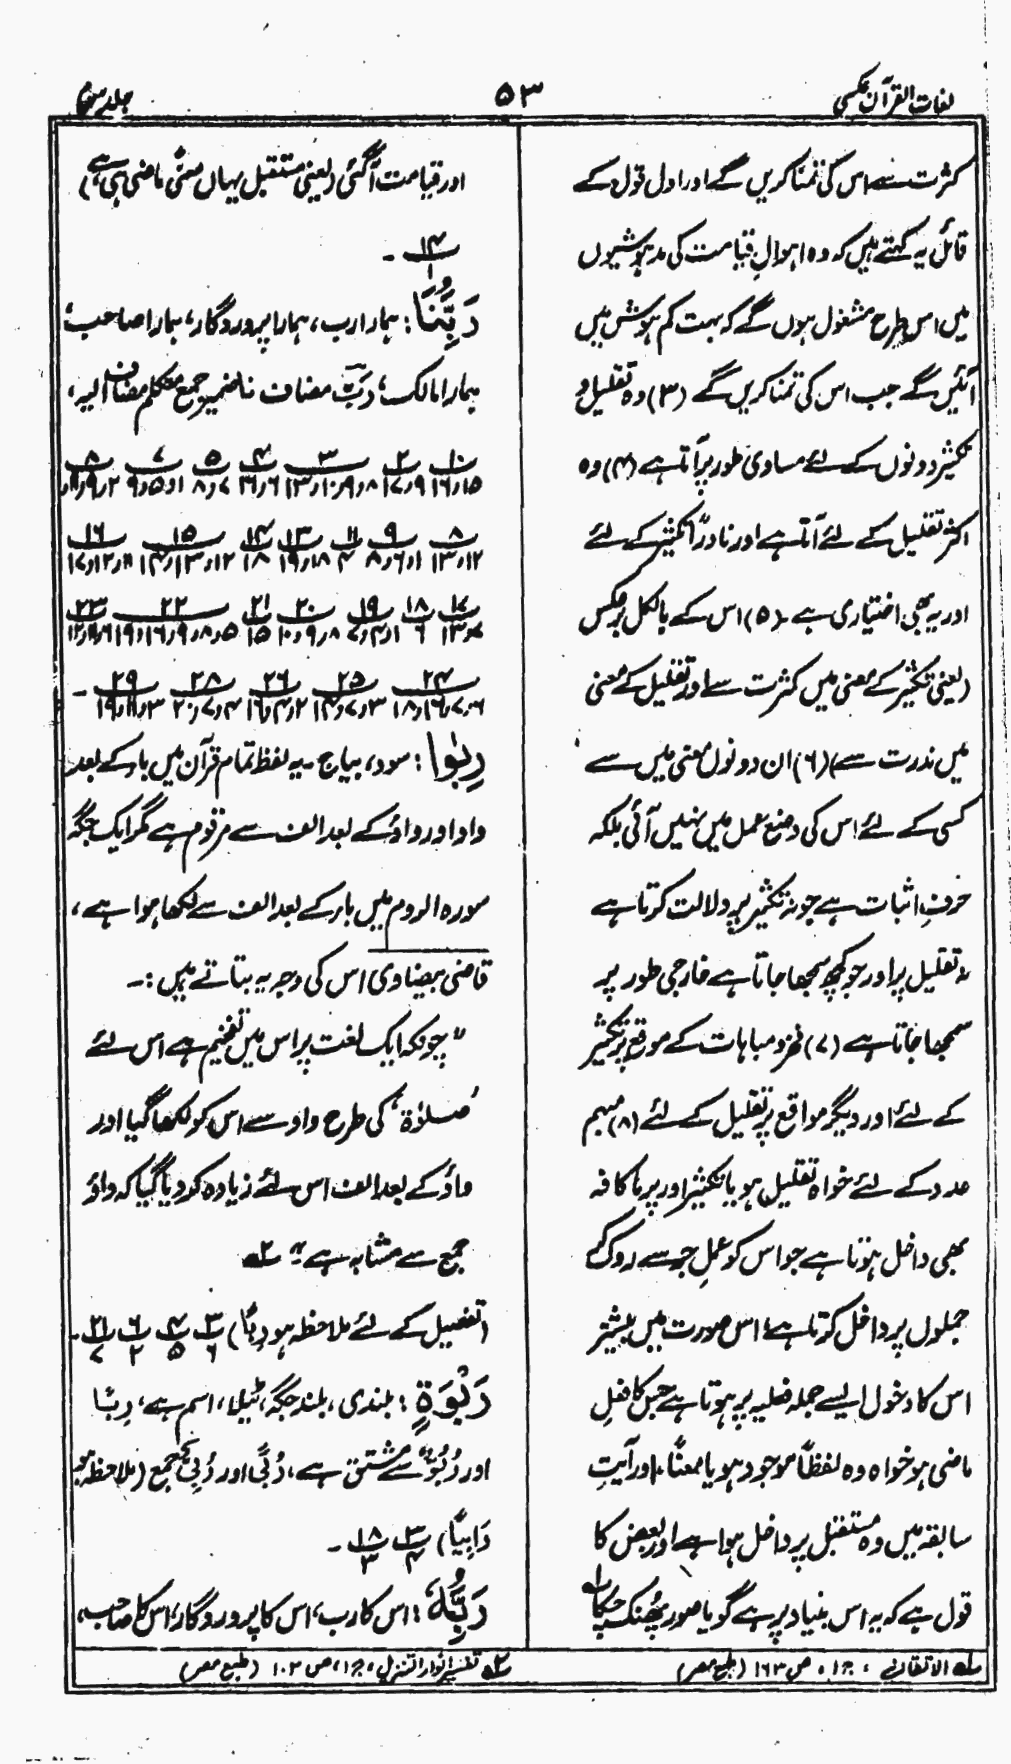 لغات القرآن عکسی
۵۳
جلد سوم
کثرت سے اس کی تمنا کریں گے اور اول قول کے
قائل یہ کہتے ہیں کہ وہ اہوالِ قیامت کی مدہوشیوں
میں اس طرح مشغول ہوں گے کہ بہت کم ہوش میں
آئیں گے جب اس کی تمنا کریں گے (۳) وہ تقلیل و
تکثیر دونوں کے لئے مساوی طور پر آتا ہے (۴) وہ
اکثر تقلیل کے لئے آتا ہے اور نادراً تکثیر کے لئے
اور یہ بھی اختیاری ہے۔ (۵) اس کے بالکل برعکس
(یعنی تکثیر کے معنی میں کثرت سے اور تقلیل کے معنی
میں ندرت سے) (۶) ان دونوں معنی میں سے
کسی کے لئے اس کی وضع عمل میں نہیں آئی بلکہ
حرفِ اثبات ہے جو نہ تکثیر پر دلالت کرتا ہے
نہ تقلیل پر اور جو کچھ سمجھا جاتا ہے خارجی طور پر
سمجھا جاتا ہے (۷) فخر و مباہات کے موقع پر تکثیر
کے لئے اور دیگر مواقع پر تقلیل کے لئے (۸) مبہم
عدد کے لئے خواہ تقلیل ہو یا تکثیر اور پر ما کافہ
بھی داخل ہوتا ہے جو اس کو عملِ جر سے روک کے
جملوں پر داخل کرتا ہے، اس صورت میں بیشتر
اس کا دخول ایسے جملہ فعلیہ پر ہوتا ہے جس کا فعلِ
ماضی ہو خواہ وہ لفظاً موجود ہو یا معناً، اور آیتِ
سابقہ میں وہ مستقبل پر داخل ہوا ہے اور بعض کا
قول ہے کہ یہ اس بنیاد پر ہے گویا صور پھنک چکا لہ
اور قیامت آگئی (یعنی مستقبل یہاں معنیً ماضی ہی ہے)
۱۴
۱ ۔
رَبُّنَا: ہمارا رب، ہمارا پروردگار، ہمارا صاحب،
ہمارا مالک، رَبّ مضاف نا ضمیر جمع متکلم مضاف الیہ،
۱۰ ۲ ۳ ۴ ۵ ۷ ۸
۸ ۹ ۱۱ ۱۳ ۱۴ ۱۵ ۱۶
۱۷ ۱۸ ۱۹ ۲۰ ۲۱ ۲۲ ۲۳
۲۴ ۲۵ ۲۶ ۲۸ ۲۹ ۔
رِبٰوا: سود، بیاج۔ یہ لفظ تمام قرآن میں بار کے بعد
واو اور واؤ کے بعد الف سے مرقوم ہے مگر ایک جگہ
سورہ الروم میں بار کے بعد الف سے لکھا ہوا ہے،
قاضی بیضاوی اس کی وجہ یہ بتاتے ہیں:۔
"چونکہ ایک لغت پر اس میں تفخیم ہے اس لئے
'صلوٰۃ' کی طرح واو سے اس کو لکھا گیا اور
واؤ کے بعد الف اس لئے زیادہ کر دیا گیا کہ واؤ
جمع سے مشابہ ہے" ۲ہ
(تفصیل کے لئے ملاحظہ ہو رِبًا) ۳/۶ ۴/۵ ۶/۲ ۲۱/۷ ۔
رَبْوَةٍ: بلندی، بلند جگہ، ٹیلا، اسم ہے، رِبًا
اور رُبُوٌّ سے مشتق ہے، رُبًی اور رُبِیٌّ جمع (ملاحظہ ہو
رَابِیًا) ۳/۴ ۱۸/۳ ۔
رَبُّهُ: اس کا رب، اس کا پروردگار، اس کا صاحب،
لہ الاتقان ، ج۱، ص ۱۶۳ (طبع مصر)
۲ہ تفسیر انوار التنزیل، ج۱، ص ۱۰۳ (طبع مصر)